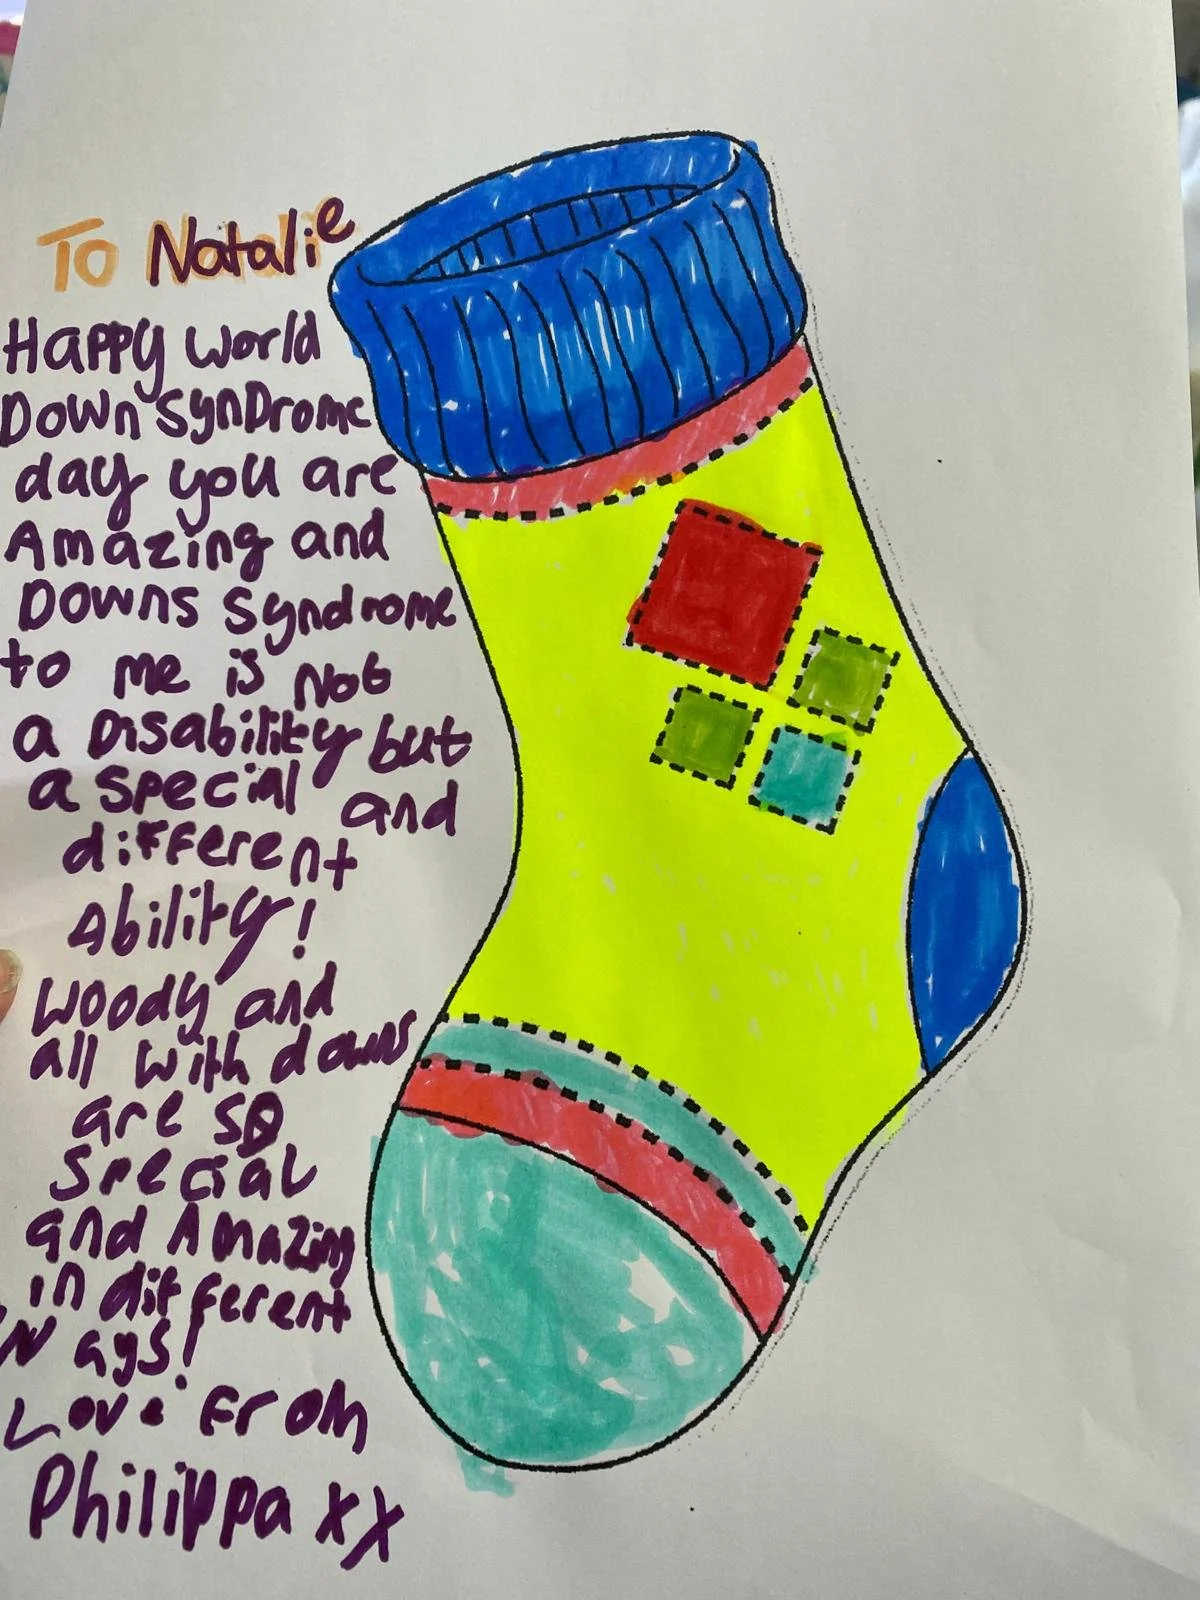 To Natalie
Happy World
Down SynDrome
day you are
Amazing and
Downs Syndrome
to me is Not
a Disability but
a special and
different
Ability!
Woody and
all with downs
are so
special
and Amazing
in different
Ways!
Love From
Philippa xx